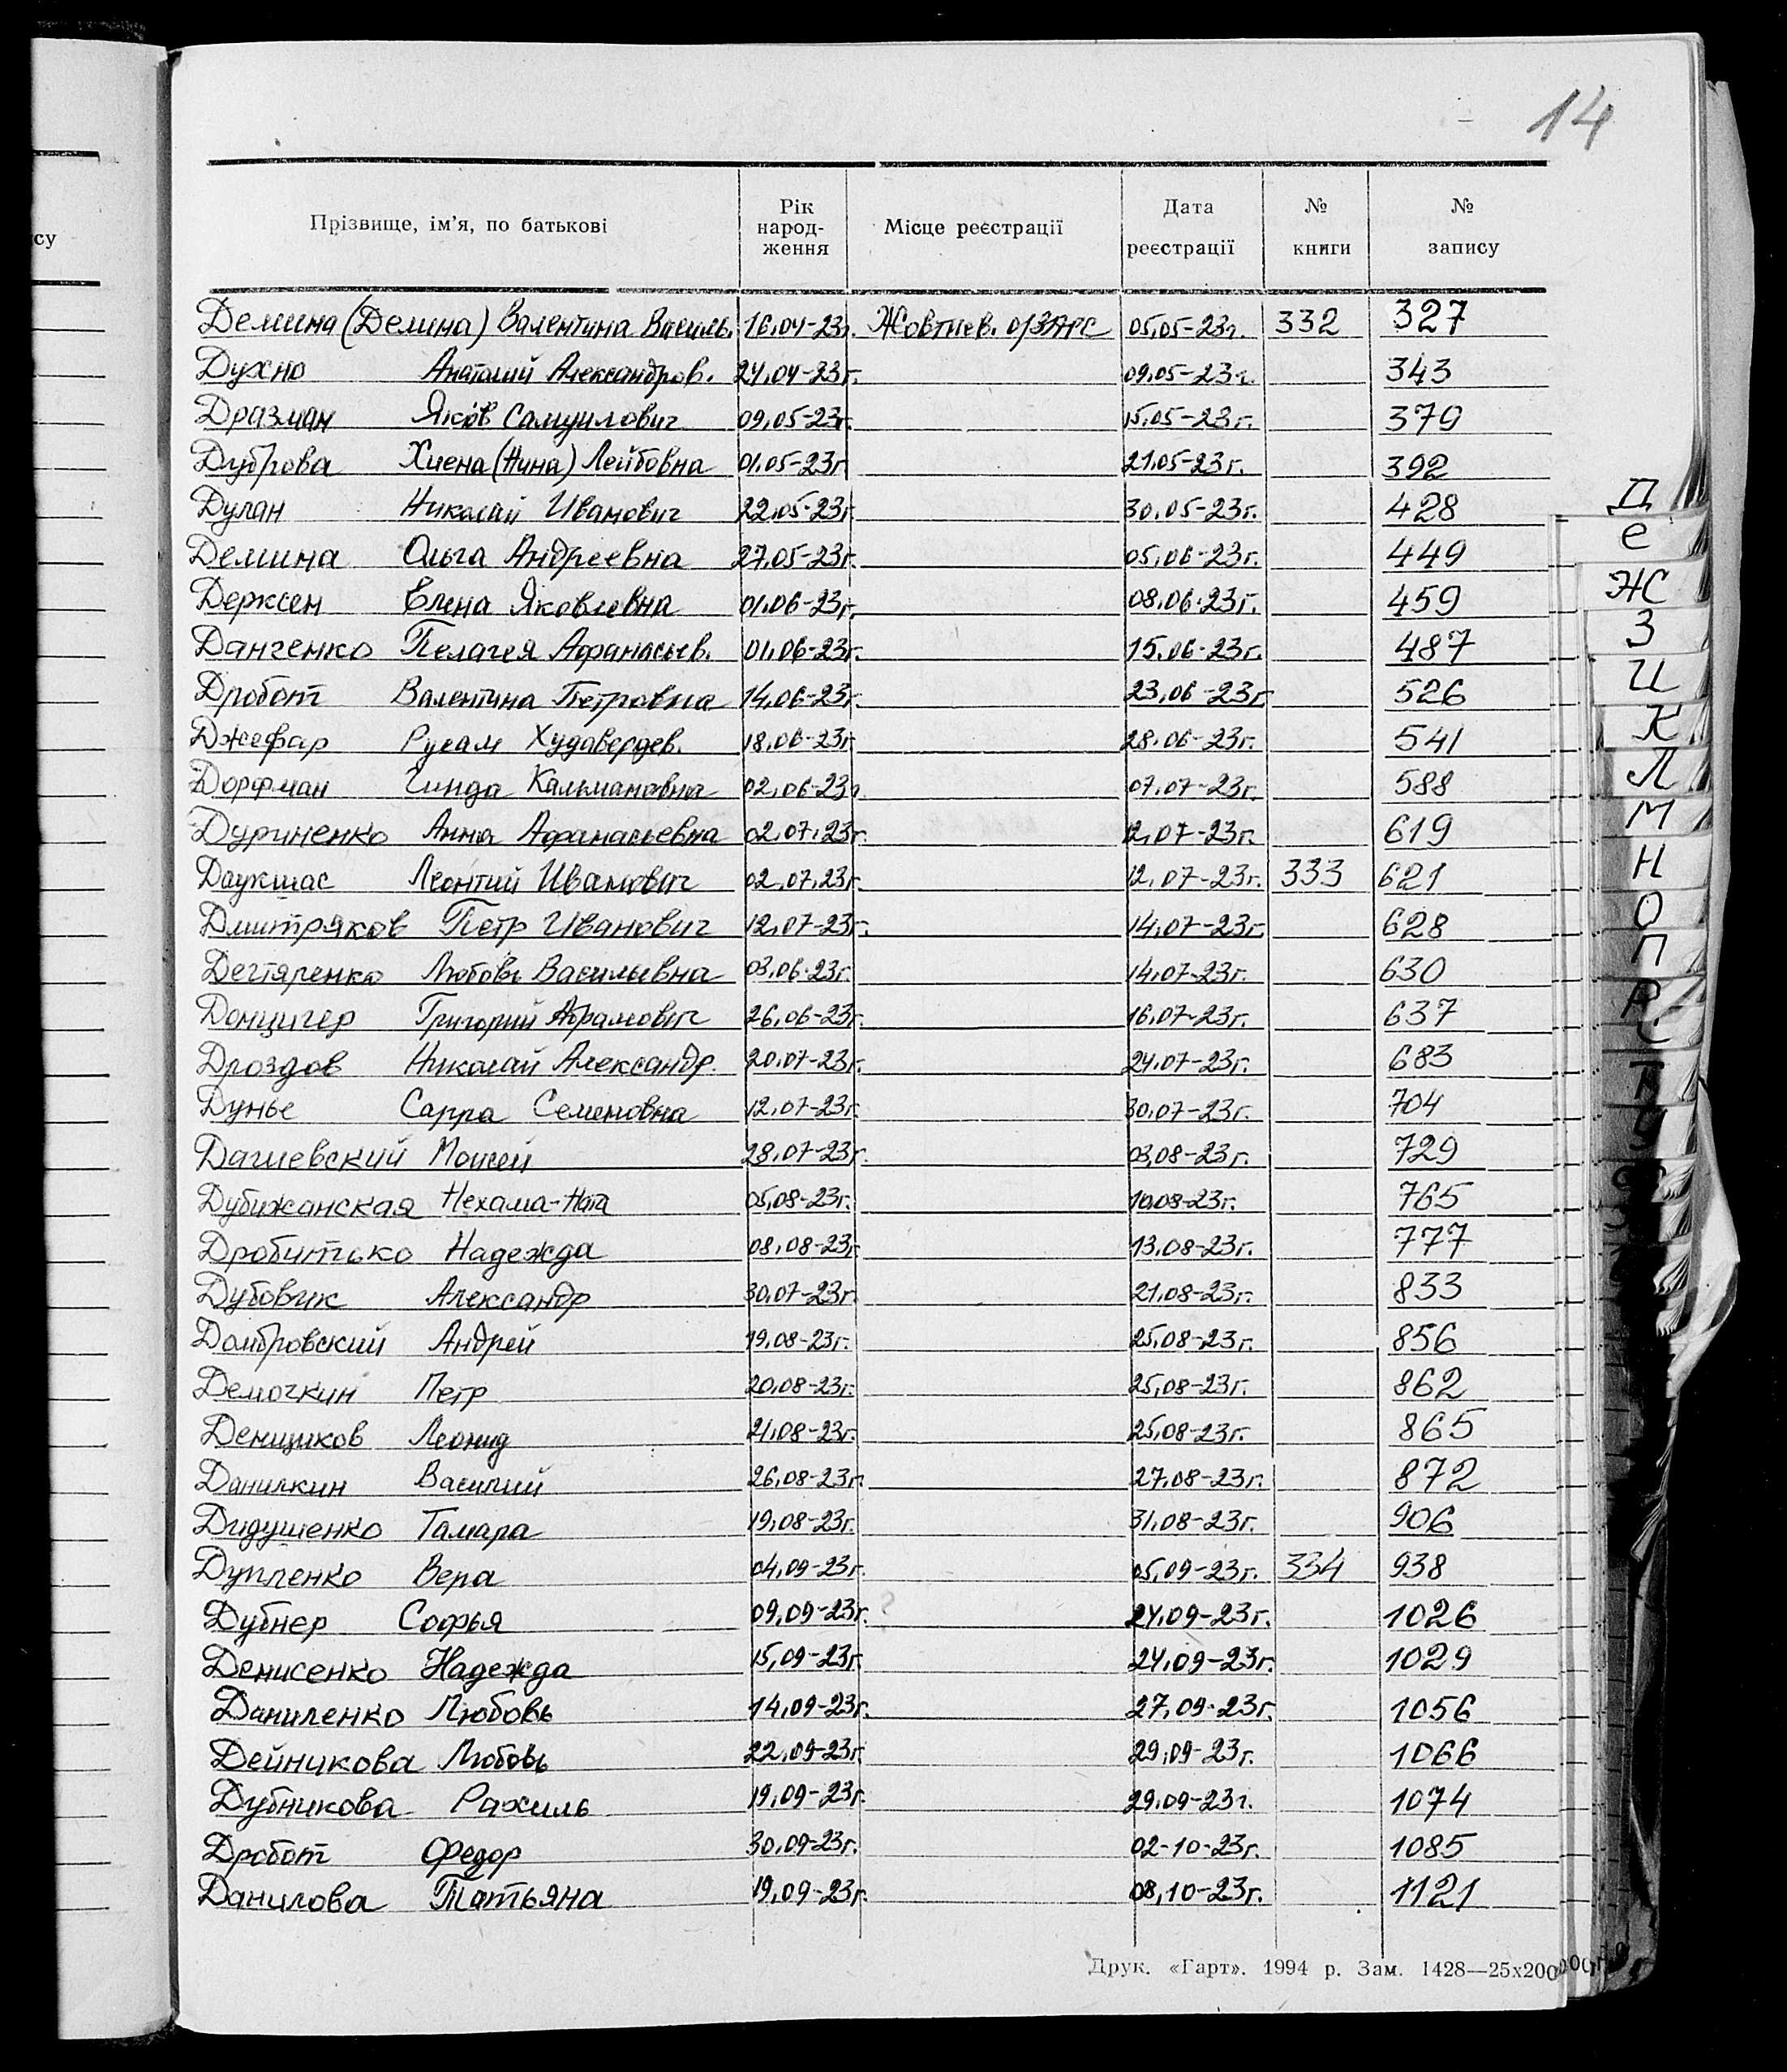 14
Прізвище, ім'я, по батькові Рік народ- ження Місце реєстрації Дата реєстрації № книги № запису
Демина (Делина) Валентина Василь. 16.04-23г. Жовтнев. о/ЗАГС 05.05-23г. 332 327
Духно Анатолий Александров. 24.04-23г. 09.05-23г. 343
Дразман Яков Самуилович 09.05-23г. 15.05-23г. 379
Дуброва Хиена (Нина) Лейбовна 01.05-23г. 21.05-23г. 392
Дулан Николай Иванович 22.05-23г. 30.05-23г. 428
Демина Ольга Андреевна 27.05-23г. 05.06-23г. 449
Дерксен Елена Яковлевна 01.06-23г. 08.06-23г. 459
Данченко Пелагея Афанасьев. 01.06-23г. 15.06-23г. 487
Дробот Валентина Петровна 14.06-23г. 23.06-23г. 526
Джефар Худавердев. 18.06-23г. 28.06-23г. 541
Дорфман Кальмановна 02.06-23г. 07.07-23г. 588
Дуриненко Анна Афанасьевна 02.07.23г. 12.07-23г. 619
Даукшас Леонтий Иванович 02.07.23г. 12.07-23г. 333 621
Дмитряков Петр Иванович 12.07-23г. 14.07-23г. 628
Дегтяренко Любовь Васильевна 03.06-23г. 14.07-23г. 630
Донцигер Григорий Абрамович 26.06-23г. 16.07-23г. 637
Дроздов Николай Александр. 20.07-23г. 24.07-23г. 683
Дунье Сарра Семеновна 12.07-23г. 30.07-23г. 704
Дашевский Моисей 28.07-23г. 03.08-23г. 729
Дубижанская Нехама-Ната 05.08-23г. 10.08-23г. 765
Дробитько Надежда 08.08-23г. 13.08-23г. 777
Дубовик Александр 30.07-23г. 21.08-23г. 833
Домбровский Андрей 19.08-23г. 25.08-23г. 856
Демочкин Петр 20.08-23г. 25.08-23г. 862
Денщиков Леонид 21.08-23г. 25.08-23г. 865
Данилкин Василий 26.08-23г. 27.08-23г. 872
Дидушенко Тамара 19.08-23г. 31.08-23г. 906
Дупленко Вера 04.09-23г. 05.09-23г. 334 938
Дубнер Софья 09.09-23г. ? 24.09-23г. 1026
Денисенко Надежда 15.09-23г. 24.09-23г. 1029
Даниленко Любовь 14.09-23г. 27.09-23г. 1056
Дейникова Любовь 22.09-23г. 29.09-23г. 1066
Дубникова Рахиль 19.09-23г. 29.09-23г. 1074
Дробот Федор 30.09-23г. 02-10-23г. 1085
Данилова Татьяна 19.09-23г. 08.10-23г. 1121
Друк. «Гарт». 1994 р. Зам. 1428—25х200
су
Д
е
Ж
З
И
К
Л
М
Н
О
П
Р
С
Т